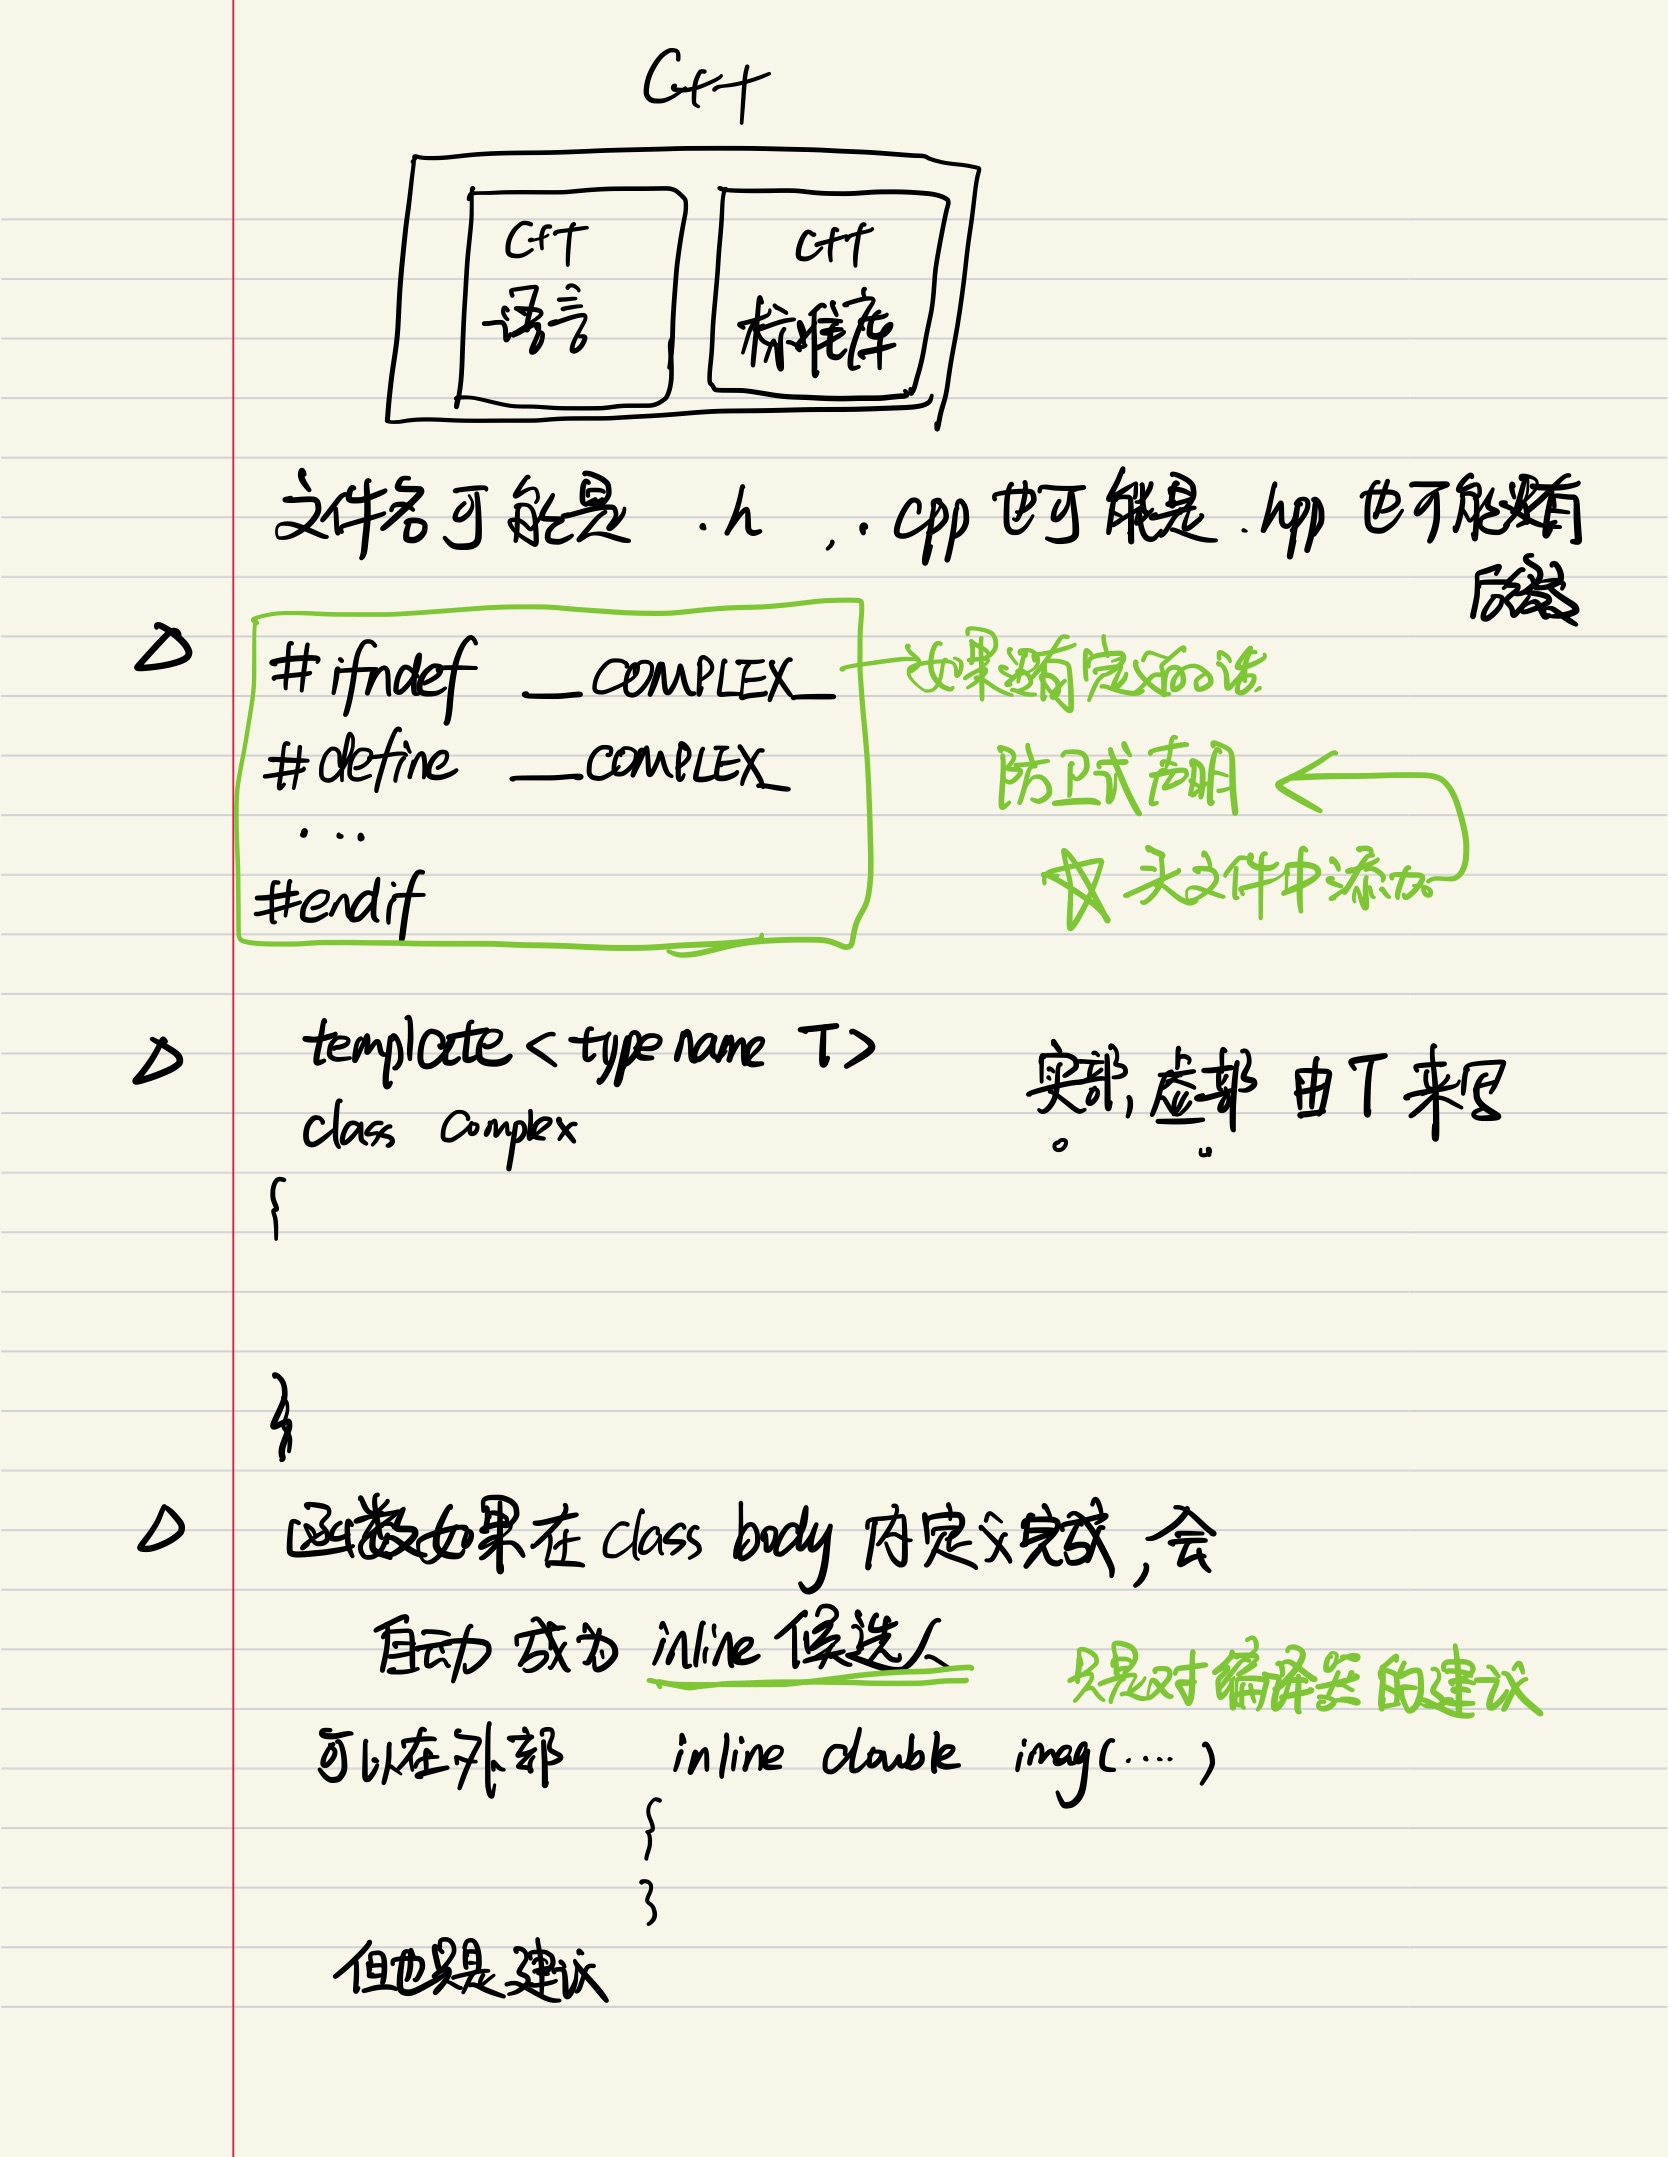 C++
C++
语言
C++
标准库
文件名可能是 .h , .cpp 也可能是 .hpp 也可能没有
后缀
#ifndef __COMPLEX__
如果没有定义的话
#define __COMPLEX__
防卫式声明
...
☆ 头文件中添加
#endif
template <typename T>
class complex
实部, 虚部 由T来写
{
}
函数如果在 class body 内定义完成, 会
自动成为 inline 候选人
只是对编译器的建议
可以在外部 inline double imag(....)
{
}
但也只是建议